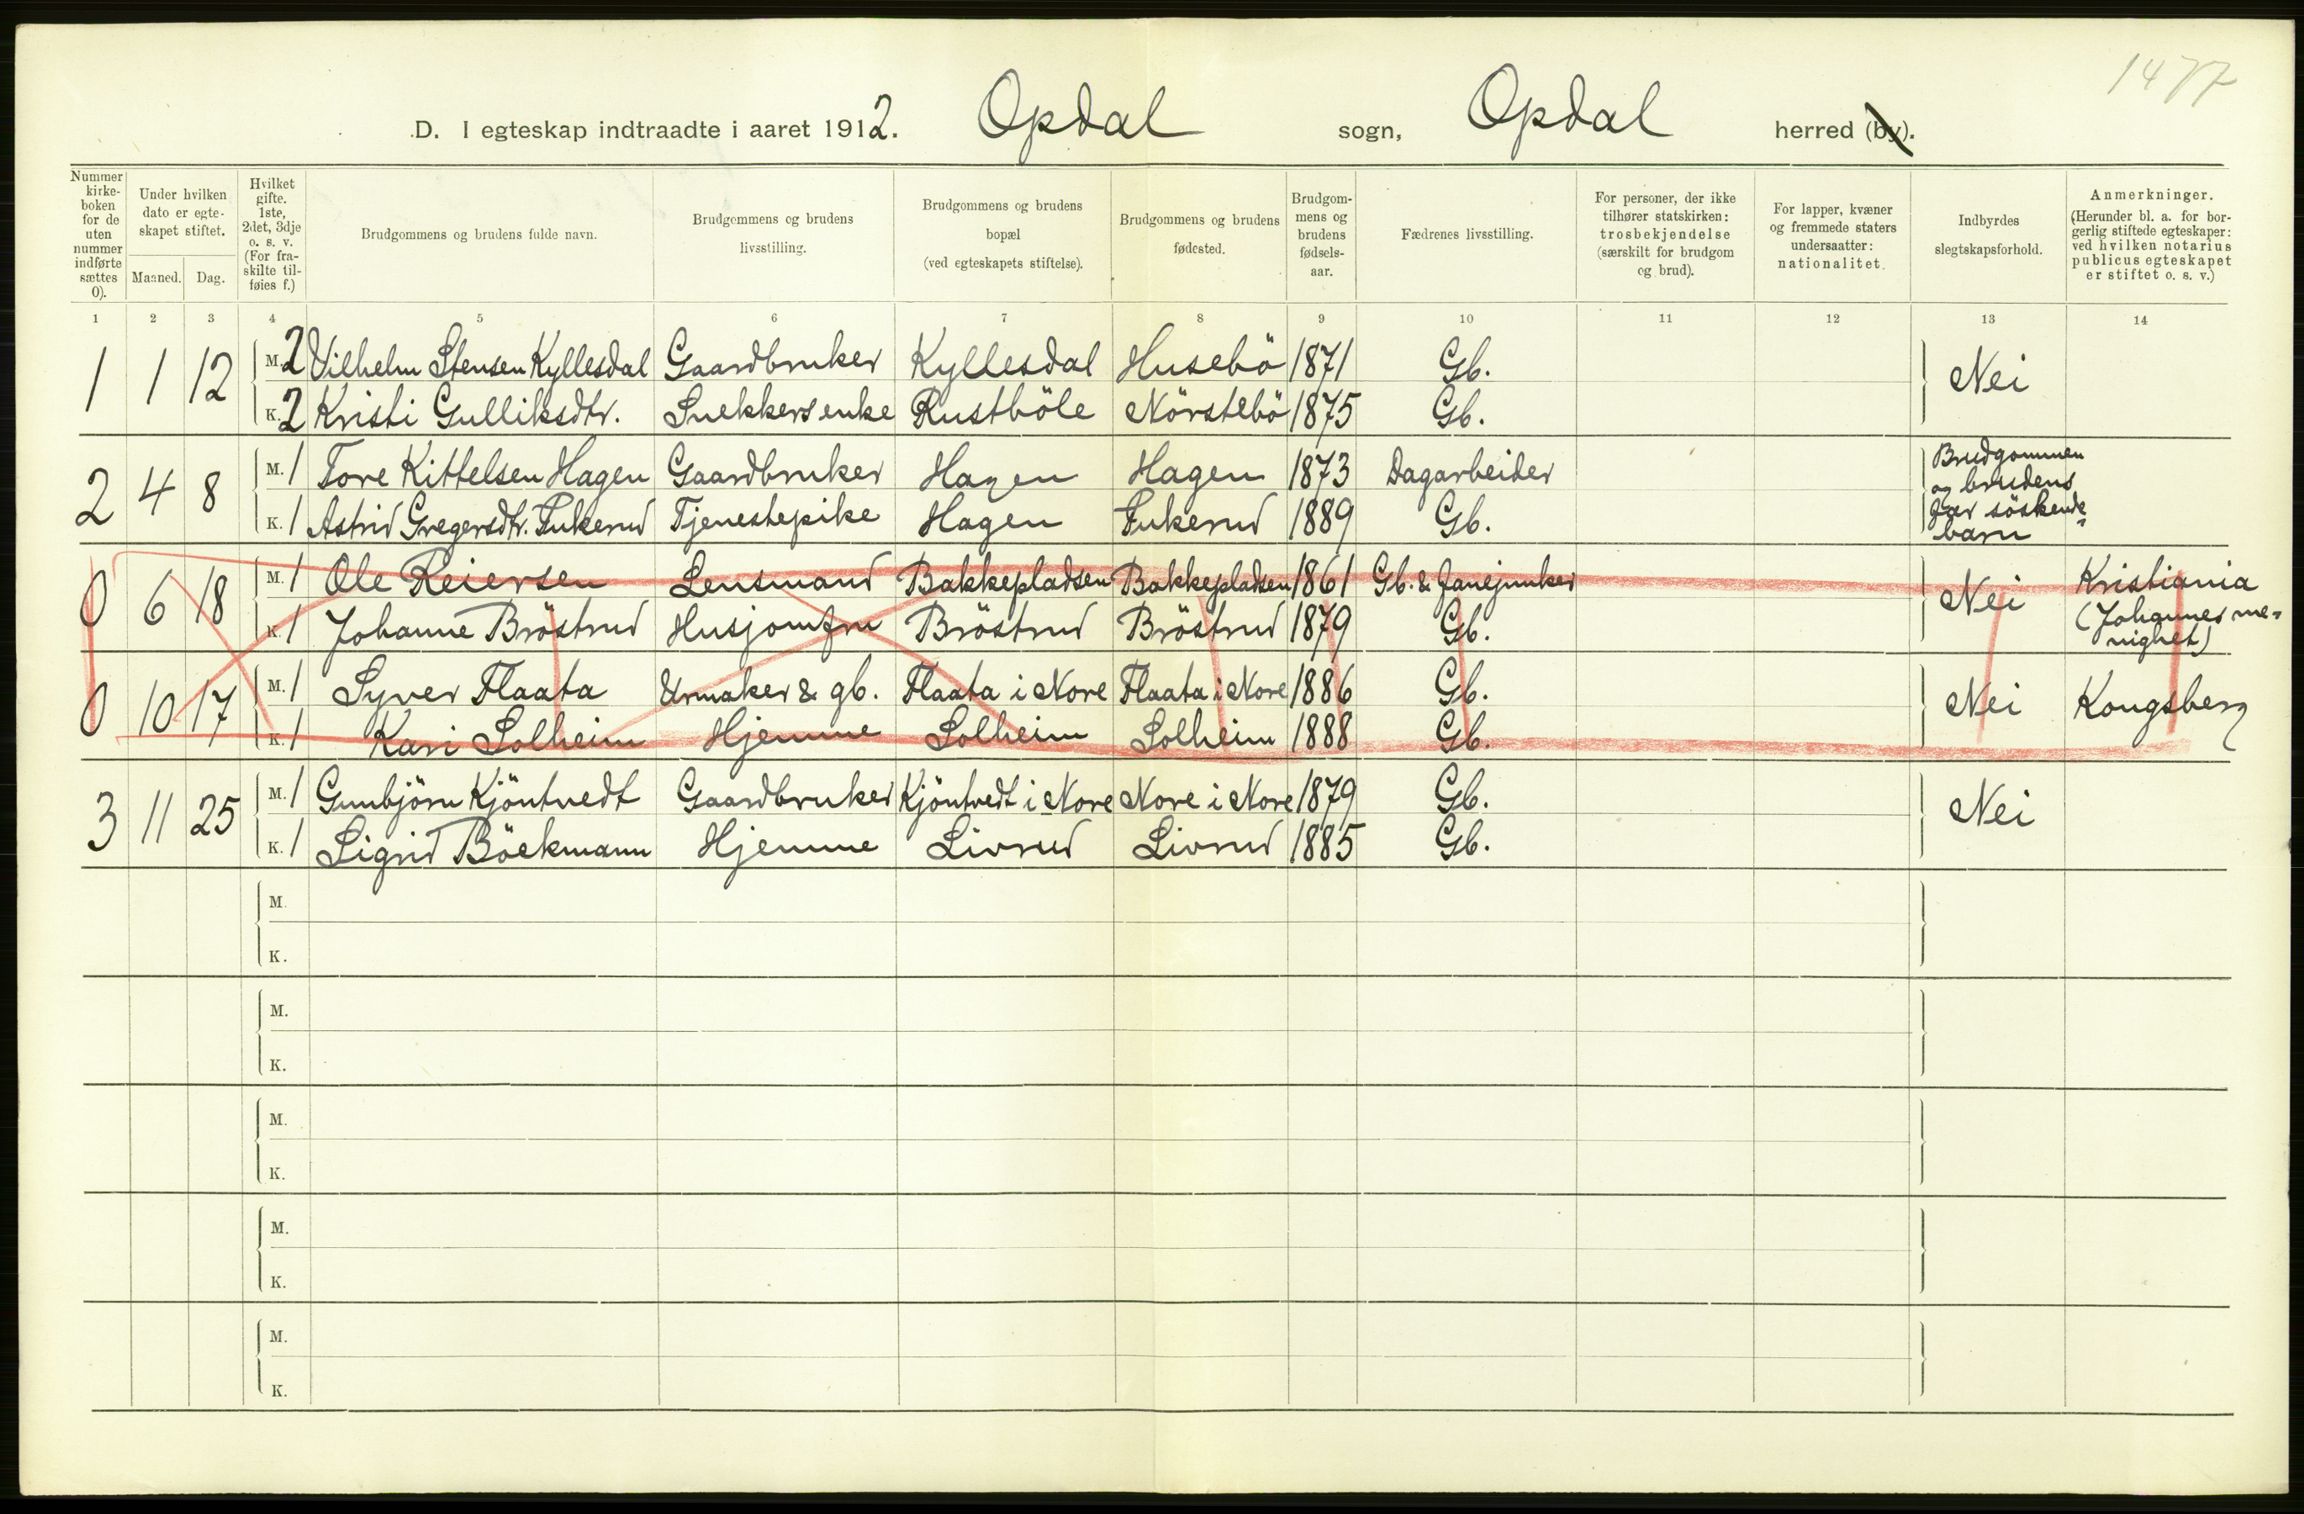 1477
D. I egteskap indtraadte i aaret 1912. Opdal sogn, Opdal herred (by).
Nummer kirke-boken for de uten nummer indførte sættes 0).
Under hvilken dato er egte-skapet stiftet.
Maaned. Dag.
Hvilket gifte. 1ste, 2det, 3dje o. s. v. (For fra-skilte til-føies f.)
Brudgommens og brudens fulde navn.
Brudgommens og brudens livsstilling.
Brudgommens og brudens bopæl (ved egteskapets stiftelse).
Brudgommens og brudens fødested.
Brudgom-mens og brudens fødsels-aar.
Fædrenes livsstilling.
For personer, der ikke tilhører statskirken: trosbekjendelse (særskilt for brudgom og brud).
For lapper, kvæner og fremmede staters undersaatter: nationalitet.
Indbyrdes slegtskapsforhold.
Anmerkninger. (Herunder bl. a. for bor-gerlig stiftede egteskaper: ved hvilken notarius publicus egteskapet er stiftet o. s. v.)
1 2 3 4 5 6 7 8 9 10 11 12 13 14
1 1 12 M. 2 Vilhelm Stensen Kyllesdal Gaardbruker Kyllesdal Husebö 1871 Gb. Nei
K. 2 Kristi Gulliksdtr. Snekkersenke Rustböle Nörstebö 1875 Gb.
2 4 8 M. 1 Tore Kittelsen Hagen Gaardbruker Hagen Hagen 1873 Dagarbeider Brudgommen og brudens
K. 1 Astrid Gregersdtr. Fukerud Tjenestepike Hagen Fukerud 1889 Gb. far söskende-barn
0 6 18 M. 1 Ole Reiersen Lensmand Bakkepladsen Bakkepladsen 1861 Gb. & fanejunker Nei Kristiania
K. 1 Johanne Bröstrud Husjomfru Bröstrud Bröstrud 1879 Gb. (Johannes me-nighet)
0 10 17 M. 1 Syver Flaata Urmaker & gb. Flaata i Nore Flaata i Nore 1886 Gb. Nei Kongsberg
K. 1 Kari Solheim Hjemme Solheim Solheim 1888 Gb.
3 11 25 M. 1 Gunbjörn Kjöntvedt Gaardbruker Kjöntvedt i Nore Nore i Nore 1879 Gb. Nei
K. 1 Sigrid Böckmann Hjemme Livrud Livrud 1885 Gb.
M.
K.
M.
K.
M.
K.
M.
K.
M.
K.